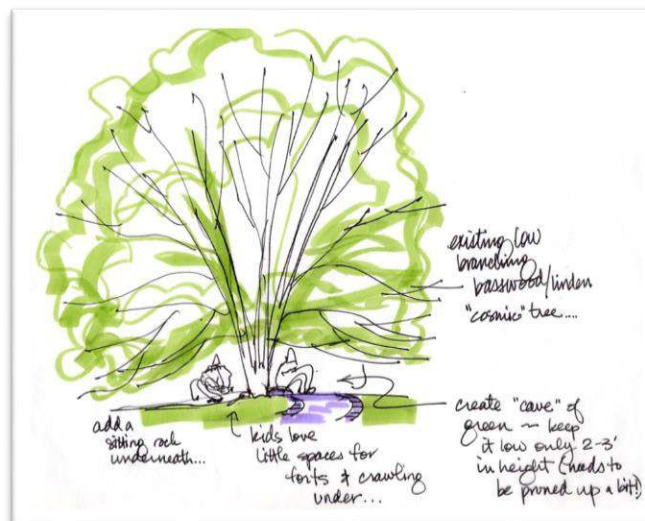 existing low
branching
basswood/linden
"cosmic" tree....
add a
sitting rock
underneath...
kids love
little spaces for
forts & crawling
under...
create "cave" of
green ~ keep
it low only 2-3'
in height (needs to
be pruned up a bit!)